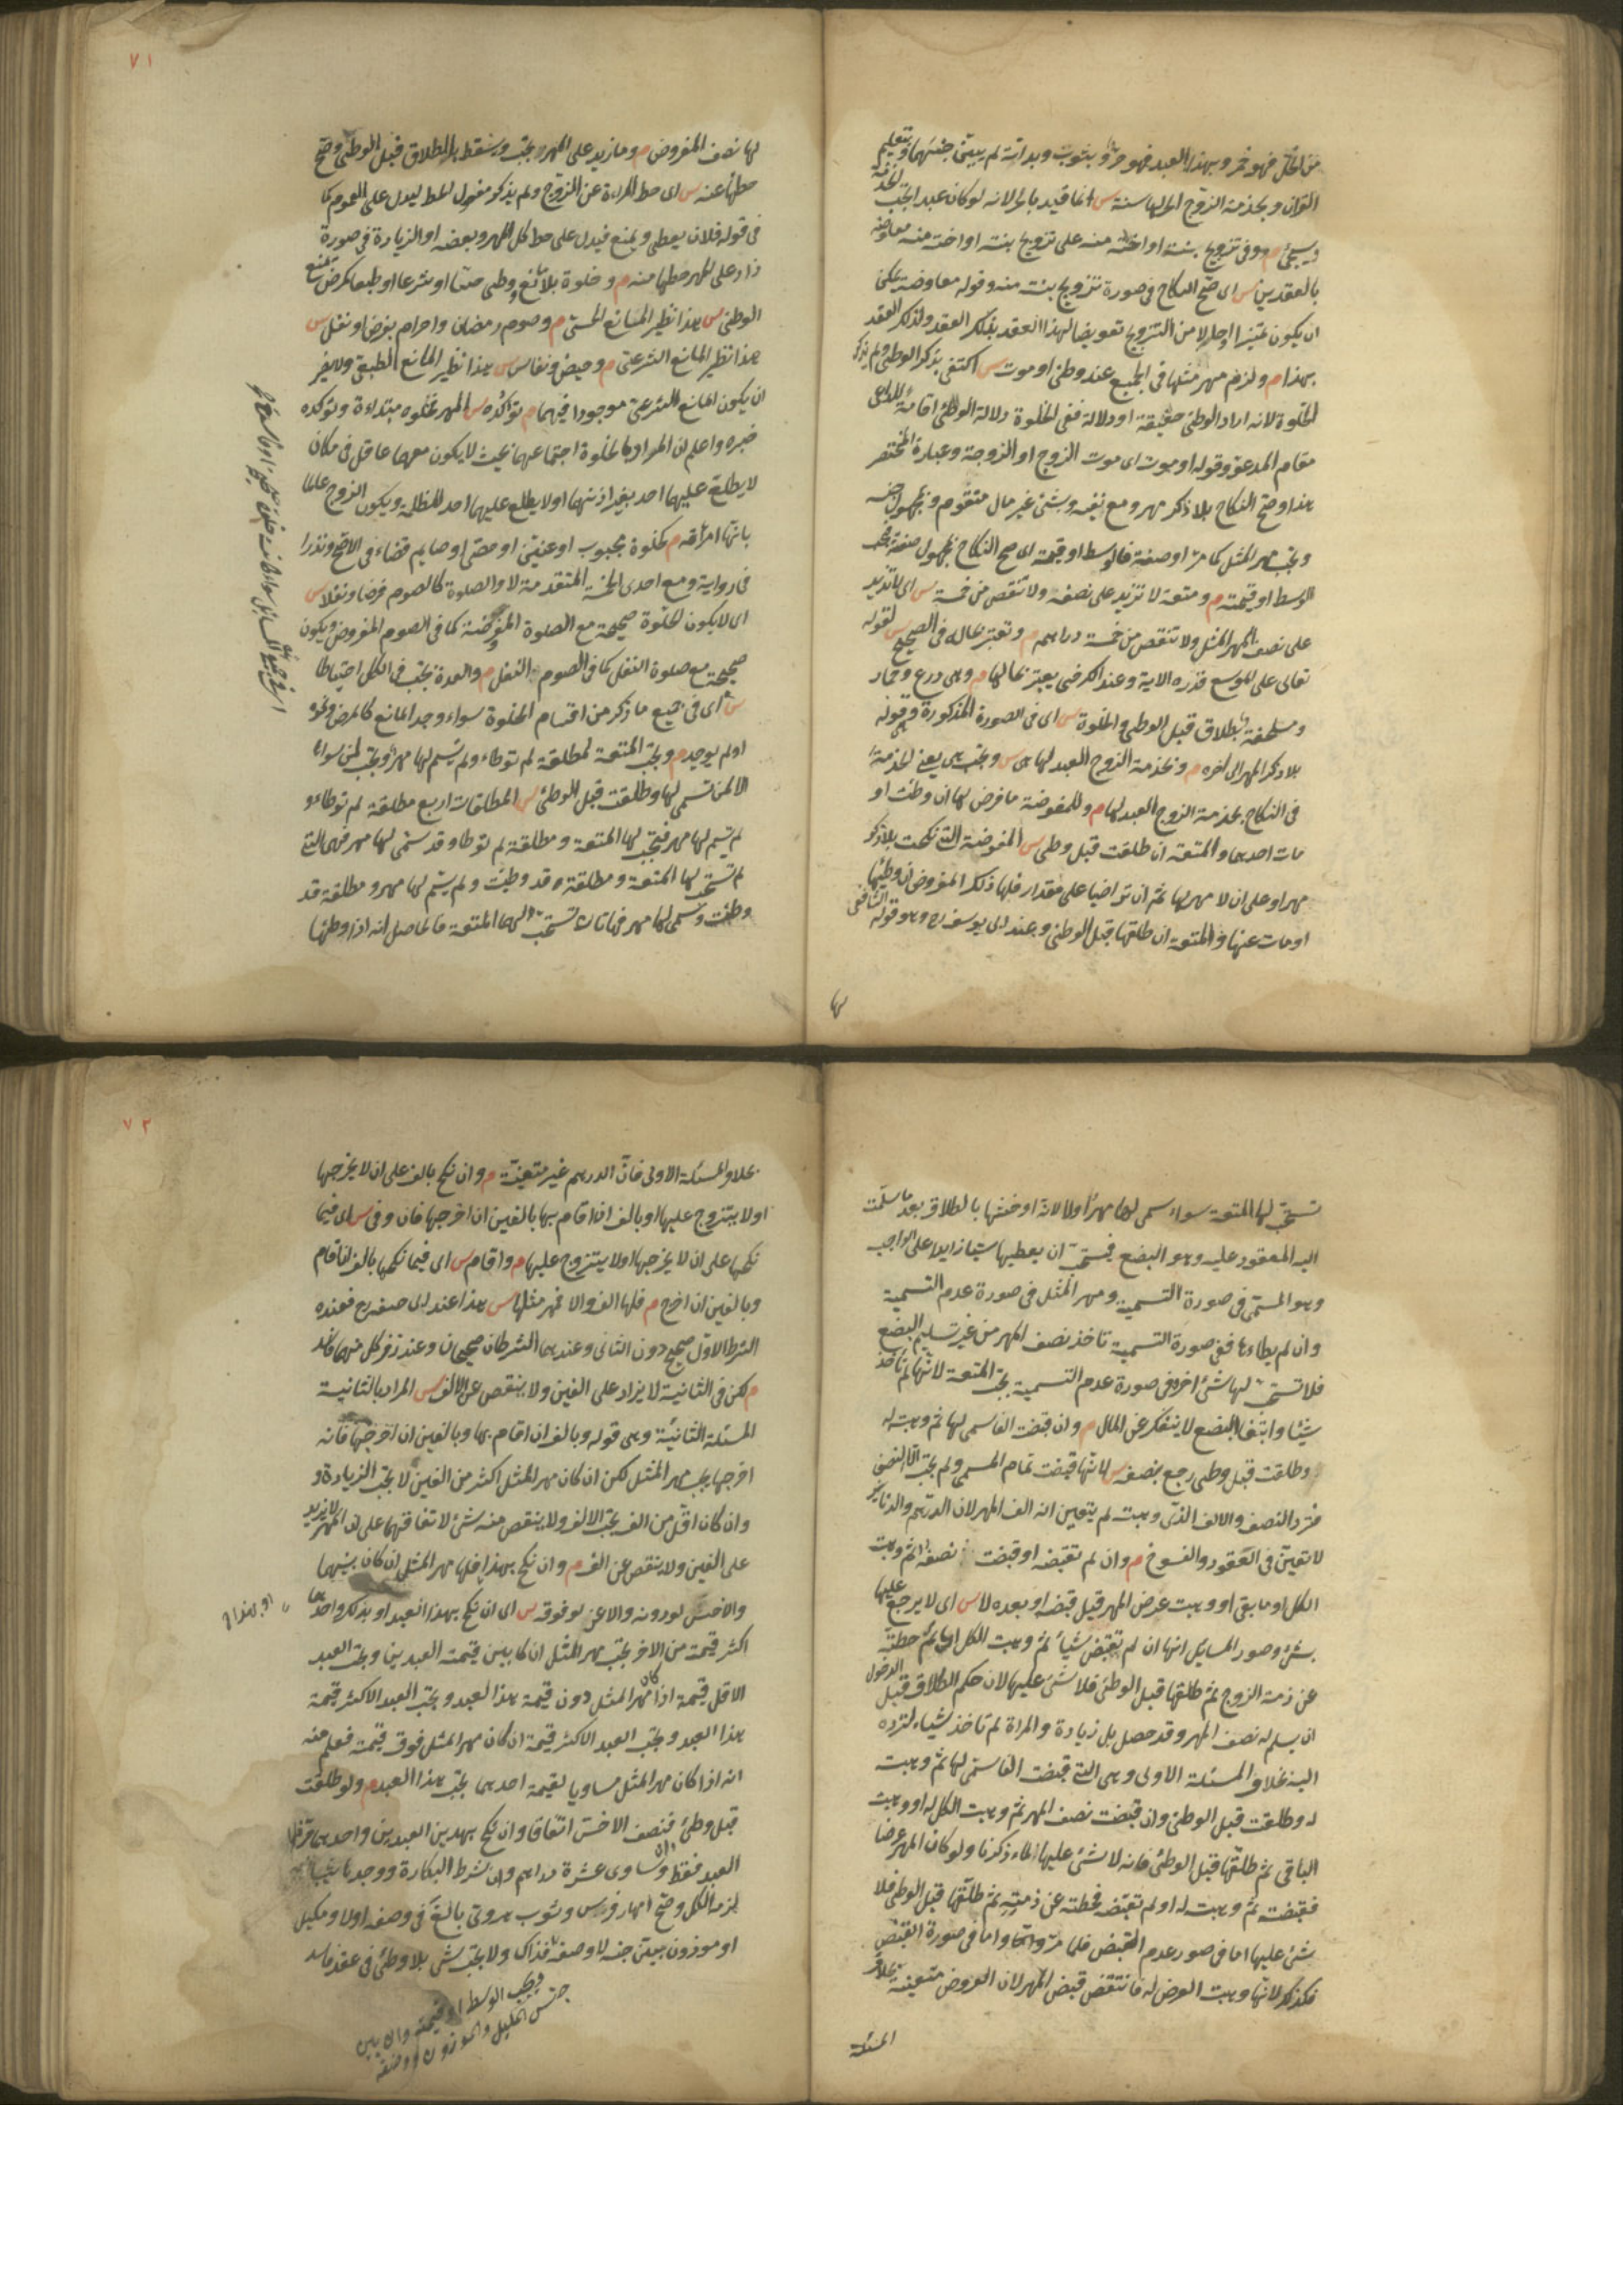 من الخل فهو خمر وبهذا العبد فهو حر وبثوب وبدابة لم يبين جنسهما وبتعليم
القران وبخدمة الزوج الحر لها سنة س انما قيد بالحر لانه لو كان عبدا تجب الخدمة
وسيجئ م وفى تزويج بنته او اخته منه على تزويج بنته او اخته منه معاوضة
بالعقدين س اى صح النكاح فى صورة تزويج بنته منه وقوله معاوضة يمكن
ان يكون تمييزا او حالا من التزويج تعويضا لهذا العقد بذلك العقد ولذلك العقد
بهذا م ولزم مهر مثلها فى الجميع عند وطئ او موت س اكتفى بذكر الوطئ ولم يذكر
الخلوة لانه اراد الوطئ حقيقة او دلالة ففى الخلوة دلالة الوطئ اقامة للداعى
مقام المدعو وقوله او موت اى موت الزوج او الزوجة وعبارة المختصر
هذا وصح النكاح بلا ذكر مهر ومع نفيه وبشئ غير مال متقوم وبمجهول جنسه
ويجب مهر المثل كما مر او صفته فالوسط او قيمته اى صح النكاح بمجهول صفته فيجب
الوسط او قيمته م ومتعة لا تزيد على نصفه ولا تنقص من خمسة س اى لا تزيد
على نصف المهر المثل ولا تنقص من خمسة دراهم م وتعتبر بحاله فى الصحيح س لقوله
تعالى على الموسع قدره الاية وعند الكرخى يعتبر بحالها م وهى درع وخمار
وملحفة بطلاق قبل الوطئ والخلوة س اى فى الصورة المذكورة وهى قوله
بلا ذكر المهر الى اخره م وبخدمة الزوج العبد لها هى س وتجب هى يعنى الخدمة
فى النكاح بخدمة الزوج العبد لها م وللمفوضة ما فرض لها ان وطئت او
مات احدهما والمتعة ان طلقت قبل وطئ س المفوضة التى نكحت بلا ذكر
مهر او على ان لا مهر لها ثم ان تراضيا على مقدار فلها ذلك المفروض ان وطئها
او مات عنها والمتعة ان طلقها قبل الوطئ وعند ابى يوسف رح وهو قول الشافعى
لها
٧١
لها نصف المفروض م وما زيد على المهر يجب ويسقط بالطلاق قبل الوطئ وصح
حطها عنه س اى حط المراءة عن الزوج ولم يذكر مفعول الحط ليدل على العموم كما
فى قوله فلان يعطى ويمنع فيدل على حط كل المهر وبعضه او الزيادة فى صورة
زاد على المهر حطها منه م وخلوة بلا مانع وطئ حسا او شرعا او طبعا كمرض يمنع
الوطئ س هذا نظير المانع الحسى م وصوم رمضان واحرام بفرض او نفل س
هذا نظير المانع الشرعى م وحيض ونفاس س هذا نظير المانع الطبعى ولا يضر
ان يكون المانع الشرعى موجودا فيهما م تؤكده س المهر تخلوه مبتداءة وتؤكده
خبره واعلم ان المراد بالخلوة اجتماعهما بحيث لا يكون معهما عاقل فى مكان
لا يطلع عليهما احد بغير اذنهما او لا يطلع عليهما احد للظلمة ويكون الزوج عالما
بانها امرأته م كخلوة مجبوب او عنين او خصى او صايم قضاء فى الاصح ونذرا
فى رواية ومع احدى الخمسة المتقدمة لا والصلوة كالصوم فرضا ونفلا س
اى لا يكون الخلوة صحيحة مع الصلوة المفروضة كما فى الصوم المفروض ويكون
صحيحة مع صلوة النفل كما فى الصوم النفل م والعدة تجب فى الكل احتياطا
س اى فى جميع ما ذكر من اقسام الخلوة سواء وجد المانع كالمرض ونحوه
او لم يوجد م وتجب المتعة لمطلقة لم توطاء ولم يسم لها مهر وتجب لمن سواها
الا لمن سمى لها وطلقت قبل الوطئ س المطلقات اربع مطلقة لم توطاء و
لم يسم لها مهر فتجب لها المتعة ومطلقة لم توطا وقد سمى لها مهر فهى التى
لم تستحب لها المتعة ومطلقة وقد وطئت ولم يسم لها مهر ومطلقة قد
وطئت وسمى لها مهر فهاتان تستحب لهما المتعة فالحاصل انه اذا وطئها
تستحب لها المتعة سواء سمى لها مهرا او لا لانه اوحشها بالطلاق بعد ما سلمت
اليه المعقود عليه وهو البضع فيستحب ان يعطيها شيا زايدا على الواجب
وهو المسمى فى صورة التسمية ومهر المثل فى صورة عدم التسمية
وان لم يطاءها ففى صورة التسمية تاخذ نصف المهر من غير تسليم البضع
فلا تستحب لها شئ اخر وفى صورة عدم التسمية تجب المتعة لانها لم تأخذ
شيئا وابتغا البضع لا ينفك عن المال م وان قبضت الفا سمى لها ثم وهبت له
وطلقت قبل وطئ رجع بنصفه س لانها قبضت تمام المسمى ولم يجب الا النصف
فترد النصف والالف الذى وهبت لم يتعين انه الف المهر لان الدراهم والدنانير
لا تتعين فى العقود والفسوخ م وان لم تقبضه او قبضت نصفه ثم وهبت
الكل او ما بقى او وهبت عرض المهر قبل قبضه او بعده لا س اى لا يرجع عليها
بشئ وصور المسايل انها ان لم تقبض شيأ ثم وهبت الكل اى حطته
عن ذمة الزوج ثم طلقها قبل الوطئ فلا شئ عليها لان حكم الطلاق قبل الدخول
ان يسلم له نصف المهر وقد حصل بل زيادة والمراة لم تاخذ شيأء لترده
اليه بخلاف المسئلة الاولى وهى التى قبضت الفا سمى لها ثم وهبت
له وطلقت قبل الوطئ وان قبضت نصف المهر ثم وهبت الكل له او وهبت
الباقى ثم طلقها قبل الوطئ فانه لا شئ عليها لما ذكرنا ولو كان المهر عرضا
فقبضت ثم وهبت له او لم تقبضه فحطته عن ذمته ثم طلقها قبل الوطئ فلا
شئ عليها اما فى صور عدم القبض فلما مر واما فى صورة القبض
فكذلك لانها وهبت العرض له فانتقض قبض المهر لان العروض متعينة بخلاف
المسئلة
٧٢
بخلاف المسئلة الاولى فان الدرهم غير متعينة م وان نكح بالف على ان لا يخرجها
او لا يتزوج عليها او بالف ان اقام بها بالفين ان اخرجها فان وفى س اى فيما
نكحها على ان لا يخرجها او لا يتزوج عليها م واقام س اى فيما نكحها بالف ان اقام
وبالفين ان اخرج م فلها الف والا فمهر مثلها س هذا عند ابى حنيفه رح فعنده
الشرط الاول صحيح دون الثانى وعندهما الشرطان صحيحان وعند زفر كل منهما فاسد
م لكن فى الثانية لا يزاد على الفين ولا ينقص عن الالف س المراد بالثانية
المسئلة الثانية وهى قوله وبالف ان اقام بها وبالفين ان اخرجها فانه
اخرجها يجب مهر المثل لكن ان كان مهر المثل اكثر من الفين لا يجب الزيادة و
وان كان اقل من الف يجب الالف ولا ينقص منه شئ لاتفاقهما على ان المهر لا يزيد
على الفين ولا ينقص عن الف م وان نكح بهذا فلها مهر المثل ان كان بينهما
والاخس لو دونه والاعز لو فوقه س اى ان نكح بهذا العبد او بذلك واحدهما
اكثر قيمة من الاخر يجب مهر المثل ان كا بين قيمة العبدين ويجب العبد
الاقل قيمة اذا كان مهر المثل دون قيمة هذا العبد ويجب العبد الاكثر قيمة
هذا العبد ويجب العبد الاكثر قيمة ان كان مهر المثل فوق قيمته فعلم منه
انه اذا كان مهر المثل مساويا لقيمة احدهما يجب هذا العبد م ولو طلقت
قبل وطئ فنصف الاخس اتفاقا وان نكح بهذين العبدين واحدهما حر فلها
العبد فقط وان ساوى عشرة دراهم وان شرط البكارة ووجدها ثيبا
لزمه الكل وصح امهار فرس وثوب هروى بالغ فى وصفه اولا ومكيل
او موزون بين جنسه لا وصفه فذاك ولا يجب شئ بلا وطئ فى عقد فاسد
فيجب الوسط او قيمته وان بين
جنس المكيل والموزون ووصفه
او بهذا